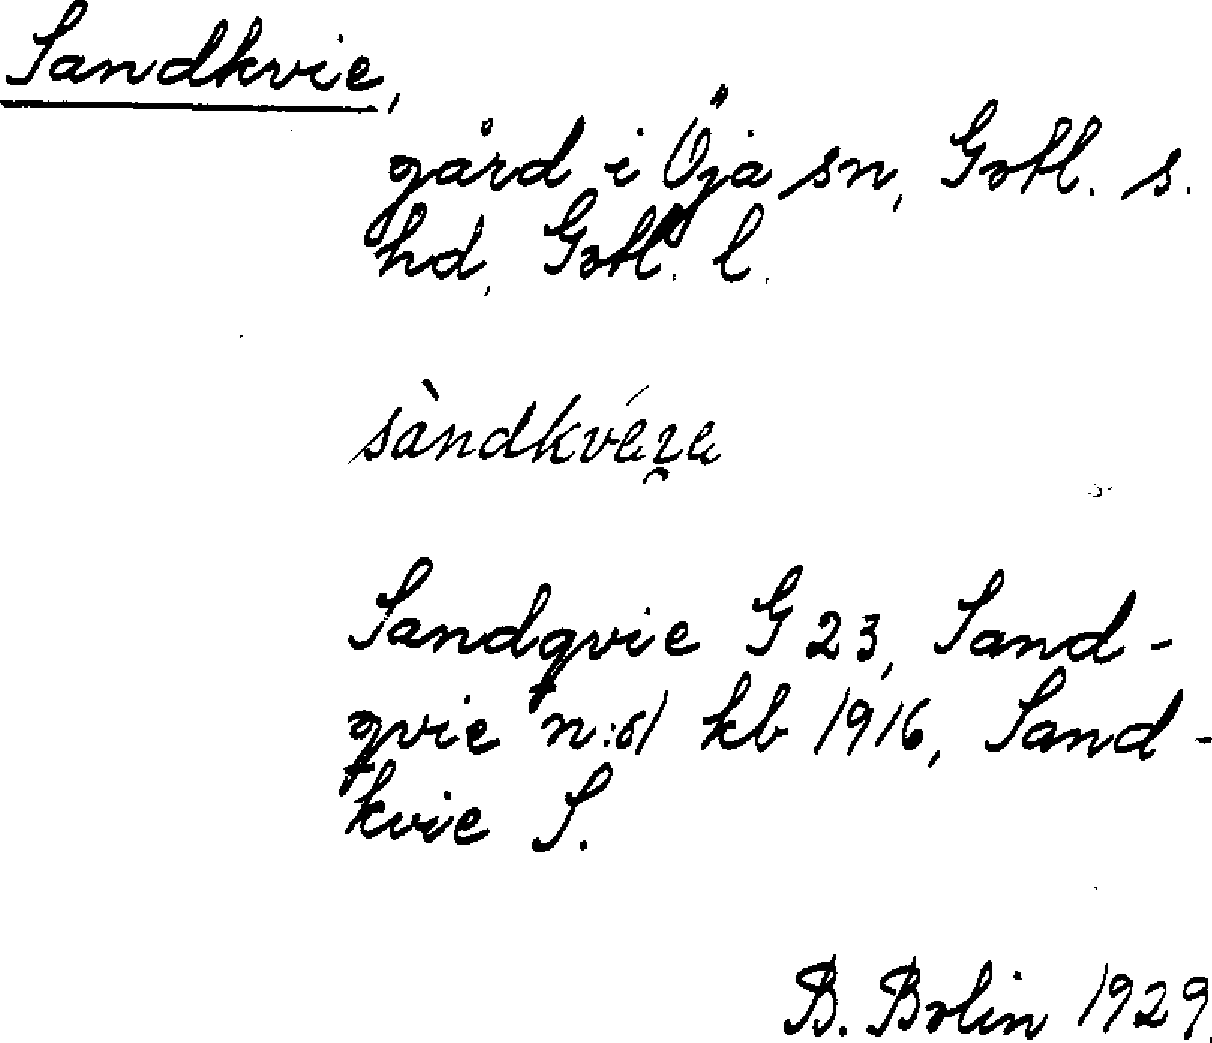 Sandkvie,
gård i Öja sn, Gotl. s.
hd, Gotl. l.
Sandqvie G 23, Sand-
qvie n:o 1 kb 1916, Sand-
kvie S.
B. Bolin 1929.